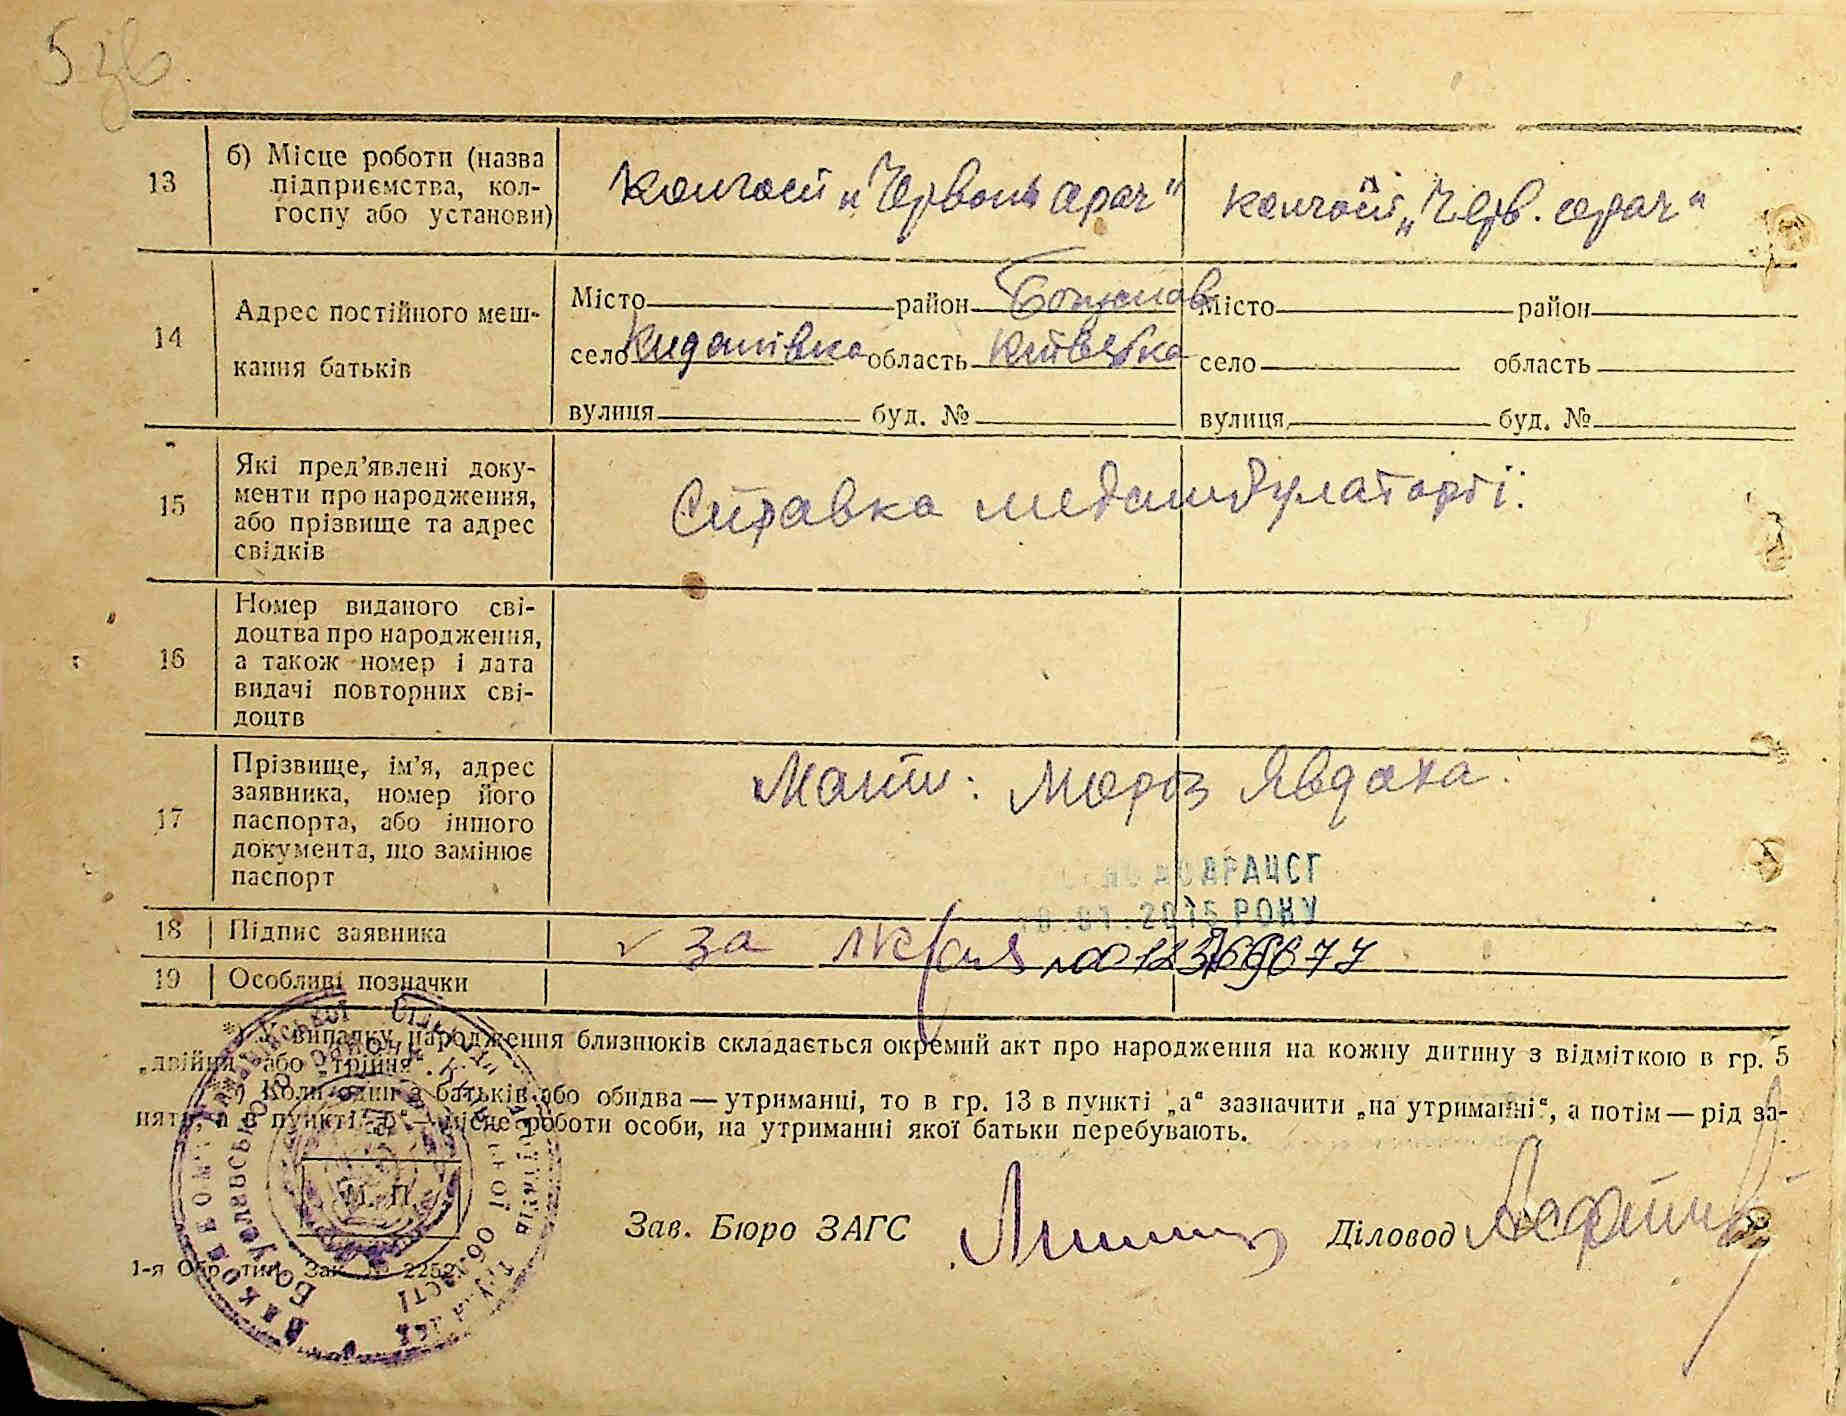 13
б) Місце роботи (назва
підприємства, кол-
госпу або установи)
колгосп „Червоний орач“
колгосп „Черв. орач“
14
Адрес постійного меш-
кання батьків
Місто район Богуслав
село область Київська
вулиця буд. №
Місто район
село область
вулиця буд. №
15
Які пред’явлені доку-
менти про народження,
або прізвище та адрес
свідків
Справка медамбулаторії.
16
Номер виданого сві-
доцтва про народження,
а також номер і дата
видачі повторних сві-
доцтв
17
Прізвище, ім’я, адрес
заявника, номер його
паспорта, або іншого
документа, що замінює
паспорт
Мати: Мороз Явдоха.
ДРАЦСГ
.01.2015 РОКУ
18 Підпис заявника
за
19 Особливі позначки
*) У випадку народження близнюків складається окремий акт про народження на кожну дитину з відміткою в гр. 5
„двійня“ або „трійня“.
**) Коли один з батьків або обидва — утриманці, то в гр. 13 в пункті „а“ зазначити „на утриманні“, а потім — рід за-
няття, а в пункті „б“ — місце роботи особи, на утриманні якої батьки перебувають.
М. П.
Зав. Бюро ЗАГС
Діловод
1-я Обр. тип. Зак. № 2252